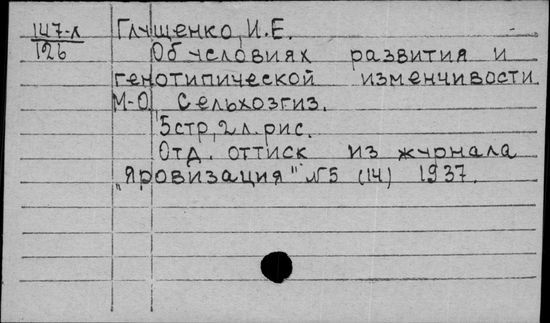 147-л Глущенко, И.Е.
126 Об условиях развития и
генотипической изменчивости.
М-О, Сельхозгиз.
5 стр, 2 л. рис.
Отд. оттиск из журнала
„Яровизация" №5 (14) 1937.